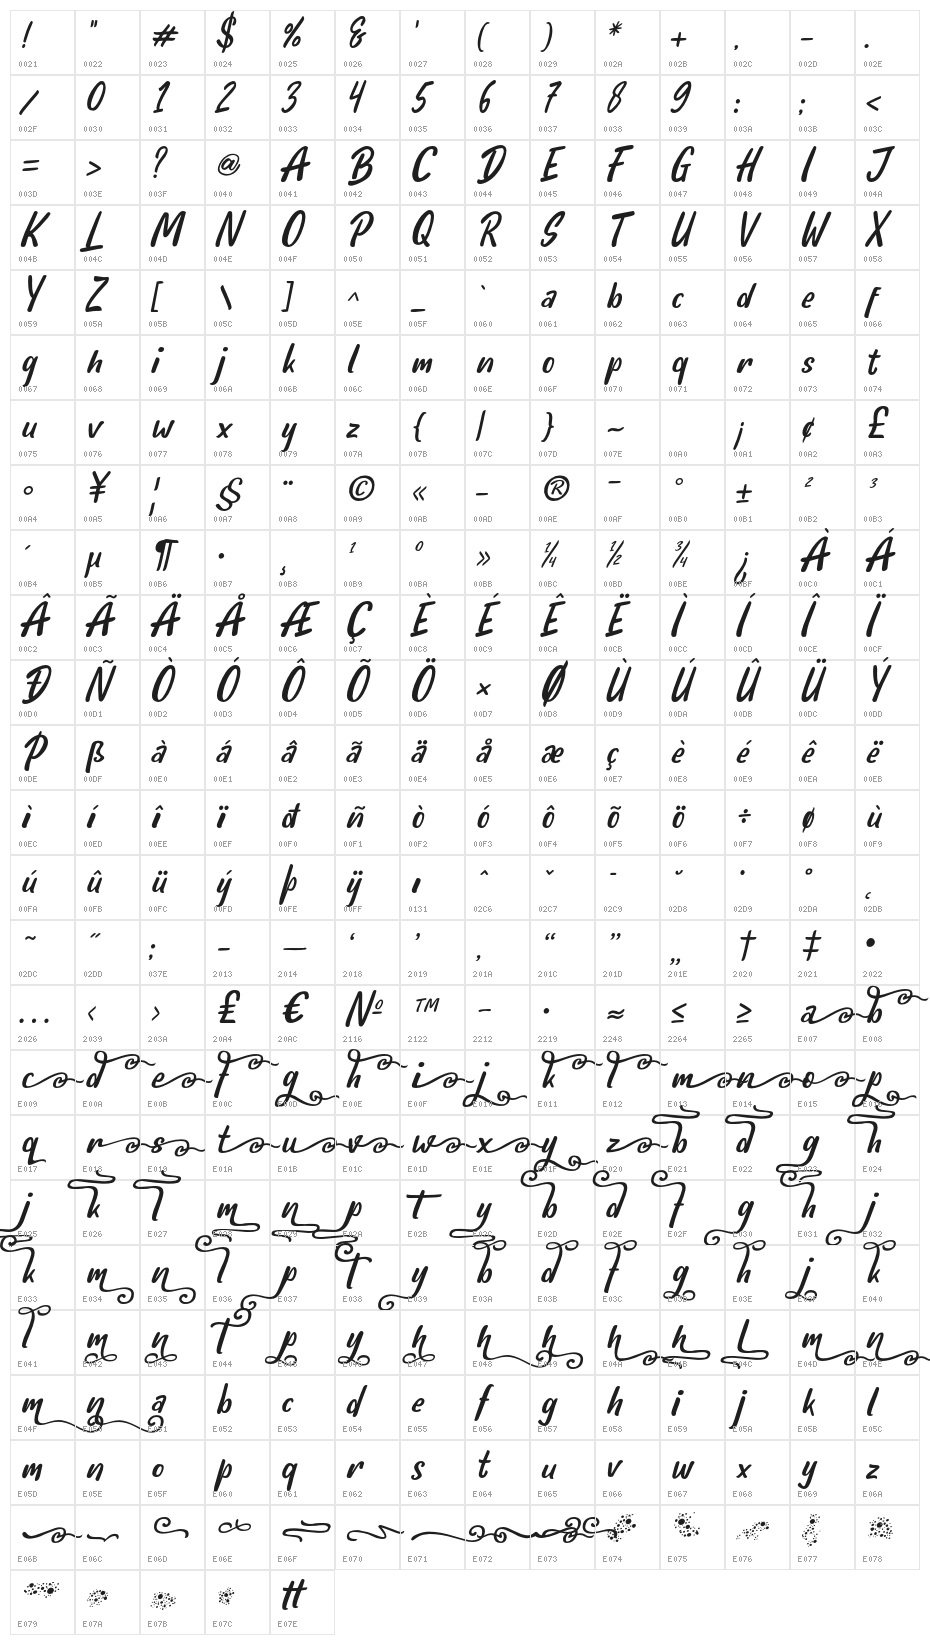 ! " # $ % & ' ( ) * + , - .
0021 0022 0023 0024 0025 0026 0027 0028 0029 002A 002B 002C 002D 002E
/ 0 1 2 3 4 5 6 7 8 9 : ; <
002F 0030 0031 0032 0033 0034 0035 0036 0037 0038 0039 003A 003B 003C
= > ? @ A B C D E F G H I J
003D 003E 003F 0040 0041 0042 0043 0044 0045 0046 0047 0048 0049 004A
K L M N O P Q R S T U V W X
004B 004C 004D 004E 004F 0050 0051 0052 0053 0054 0055 0056 0057 0058
Y Z [ \ ] ^ _ ` a b c d e f
0059 005A 005B 005C 005D 005E 005F 0060 0061 0062 0063 0064 0065 0066
g h i j k l m n o p q r s t
0067 0068 0069 006A 006B 006C 006D 006E 006F 0070 0071 0072 0073 0074
u v w x y z { | } ~ ¡ ¢ £
0075 0076 0077 0078 0079 007A 007B 007C 007D 007E 00A0 00A1 00A2 00A3
¤ ¥ ¦ § ¨ © « - ® ¯ ° ± ² ³
00A4 00A5 00A6 00A7 00A8 00A9 00AB 00AD 00AE 00AF 00B0 00B1 00B2 00B3
´ µ ¶ · ¸ ¹ º » ¼ ½ ¾ ¿ À Á
00B4 00B5 00B6 00B7 00B8 00B9 00BA 00BB 00BC 00BD 00BE 00BF 00C0 00C1
Â Ã Ä Å Æ Ç È É Ê Ë Ì Í Î Ï
00C2 00C3 00C4 00C5 00C6 00C7 00C8 00C9 00CA 00CB 00CC 00CD 00CE 00CF
Ð Ñ Ò Ó Ô Õ Ö × Ø Ù Ú Û Ü Ý
00D0 00D1 00D2 00D3 00D4 00D5 00D6 00D7 00D8 00D9 00DA 00DB 00DC 00DD
Þ ß à á â ã ä å æ ç è é ê ë
00DE 00DF 00E0 00E1 00E2 00E3 00E4 00E5 00E6 00E7 00E8 00E9 00EA 00EB
ì í î ï ð ñ ò ó ô õ ö ÷ ø ù
00EC 00ED 00EE 00EF 00F0 00F1 00F2 00F3 00F4 00F5 00F6 00F7 00F8 00F9
ú û ü ý þ ÿ ı ˆ ˇ ˉ ˘ ˙ ˚ ˛
00FA 00FB 00FC 00FD 00FE 00FF 0131 02C6 02C7 02C9 02D8 02D9 02DA 02DB
˜ ˝ ; – — ‘ ’ ‚ “ ” „ † ‡ •
02DC 02DD 037E 2013 2014 2018 2019 201A 201C 201D 201E 2020 2021 2022
… ‹ › ₤ € № ™ − ∙ ≈ ≤ ≥ a b
2026 2039 203A 20A4 20AC 2116 2122 2212 2219 2248 2264 2265 E007 E008
c d e f g h i j k l m n o p
E009 E00A E00B E00C E00D E00E E00F E010 E011 E012 E013 E014 E015 E016
q r s t u v w x y z b d g h
E017 E018 E019 E01A E01B E01C E01D E01E E01F E020 E021 E022 E023 E024
j k l m n p t y b d f g h j
E025 E026 E027 E028 E029 E02A E02B E02C E02D E02E E02F E030 E031 E032
k m n l p t y b d f g h j k
E033 E034 E035 E036 E037 E038 E039 E03A E03B E03C E03D E03E E03F E040
l m n t p y h h h h h L m n
E041 E042 E043 E044 E045 E046 E047 E048 E049 E04A E04B E04C E04D E04E
m n a b c d e f g h i j k l
E04F E050 E051 E052 E053 E054 E055 E056 E057 E058 E059 E05A E05B E05C
m n o p q r s t u v w x y z
E05D E05E E05F E060 E061 E062 E063 E064 E065 E066 E067 E068 E069 E06A
E06B E06C E06D E06E E06F E070 E071 E072 E073 E074 E075 E076 E077 E078
tt
E079 E07A E07B E07C E07E